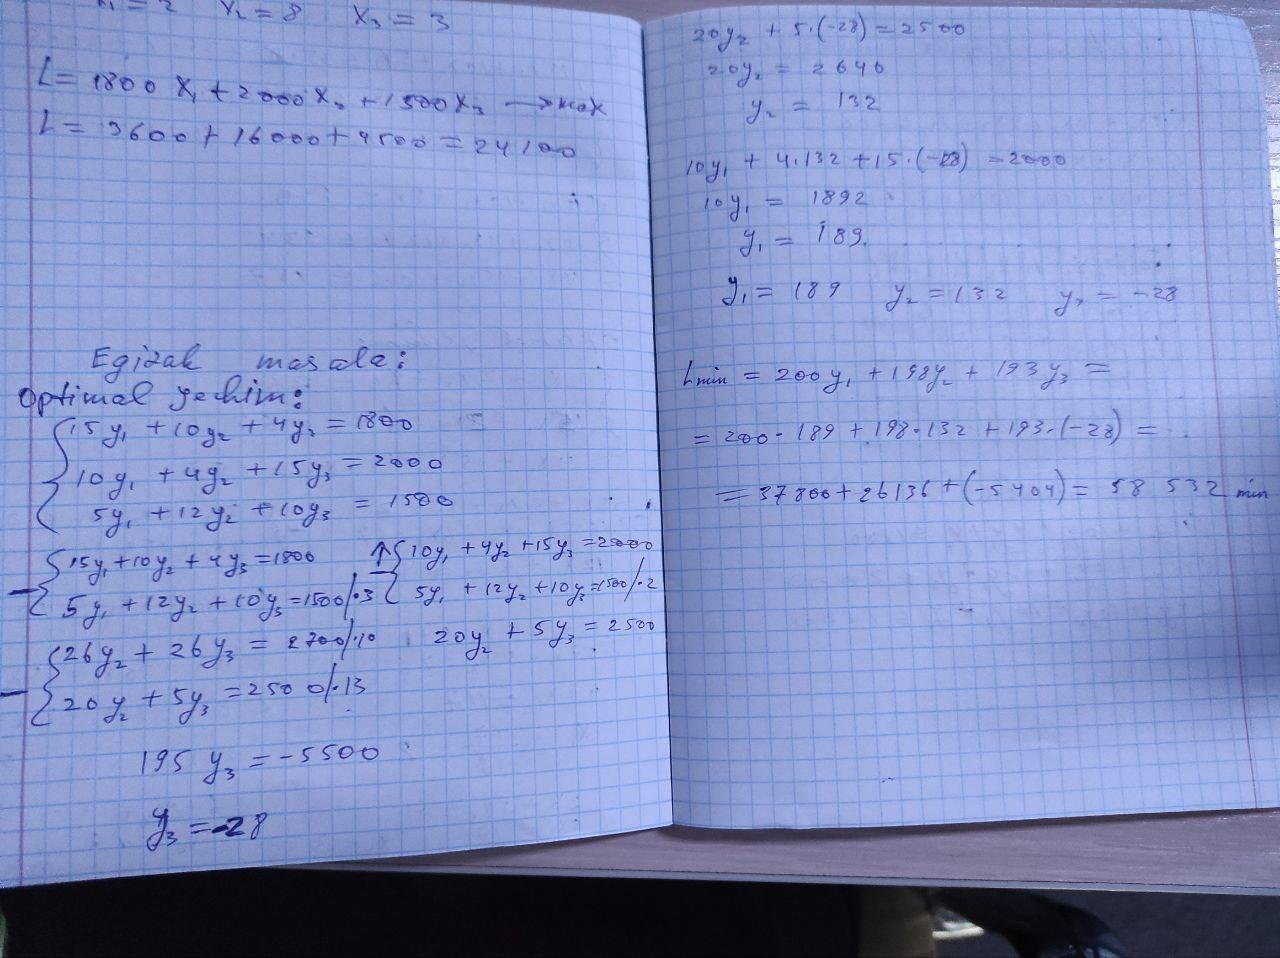 x₁ = 2 x₂ = 8 x₃ = 3
L = 1800 x₁ + 2000 x₂ + 1500 x₃ → max
L = 3600 + 16000 + 4500 = 24100
Egizak masala:
Optimal yechim:
15y₁ + 10y₂ + 4y₃ = 1800
10y₁ + 4y₂ + 15y₃ = 2000
5y₁ + 12y₂ + 10y₃ = 1500
15y₁ + 10y₂ + 4y₃ = 1800
5y₁ + 12y₂ + 10y₃ = 1500 /·3
10y₁ + 4y₂ + 15y₃ = 2000
5y₁ + 12y₂ + 10y₃ = 1500 /·2
26y₂ + 26y₃ = 2700 /·10
20y₂ + 5y₃ = 2500 /·13
20y₂ + 5y₃ = 2500
195 y₃ = -5500
y₃ = -28
20y₂ + 5·(-28) = 2500
20y₂ = 2640
y₂ = 132
10y₁ + 4·132 + 15·(-28) = 2000
10y₁ = 1892
y₁ = 189
y₁ = 189 y₂ = 132 y₃ = -28
Lmin = 200y₁ + 198y₂ + 193y₃ =
= 200 · 189 + 198·132 + 193·(-28) =
= 37800 + 26136 + (-5404) = 58 532 min